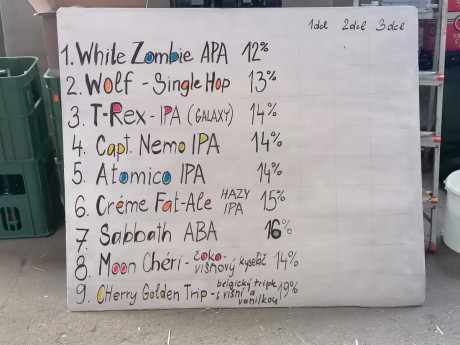 1dcl 2dcl 3dcl
1. White Zombie APA 12%
2. Wolf - Single Hop 13%
3. T-Rex - IPA (GALAXY) 14%
4. Capt. Nemo IPA 14%
5. Atomico IPA 14%
6. Créme Fat-Ale HAZY IPA 15%
7. Sabbath ABA 16%
8. Moon Chéri - čoko-višňový kyseláč 14%
9. CHerry Golden Trip - belgický triple s višní a vanilkou 19%